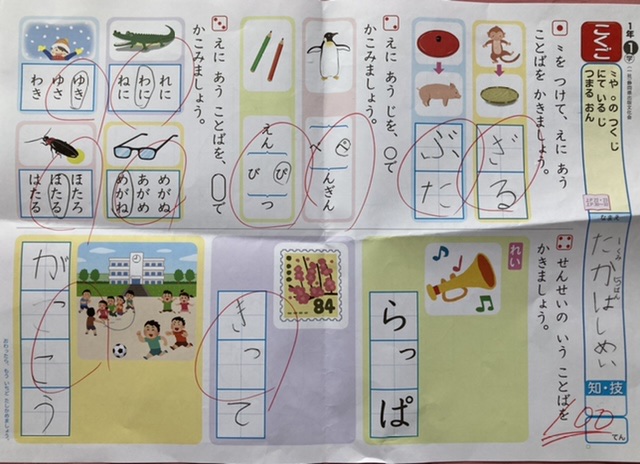 1年 1学
こくご
〝や 。の つく じ
にて いる じ
つまる おん
なまえ
たかはしめい
知・技
100
てん
1
〝を つけて、えに あう
ことばを かきましょう。
ざる
ぶた
2
えに あう じを、○で
かこみましょう。
ぺ
ぺ
んぎん
えん
ぴ
び
つ
3
えに あう ことばを、○で
かこみましょう。
れに
わに
ねに
ゆき
ゆさ
わき
めがぬ
あがめ
めがね
ほたろ
ほたる
はたる
4
せんせいの いう ことばを
かきましょう。
れい
らっぱ
84
きって
がっこう
おわったら、もう いちど たしかめましょう。